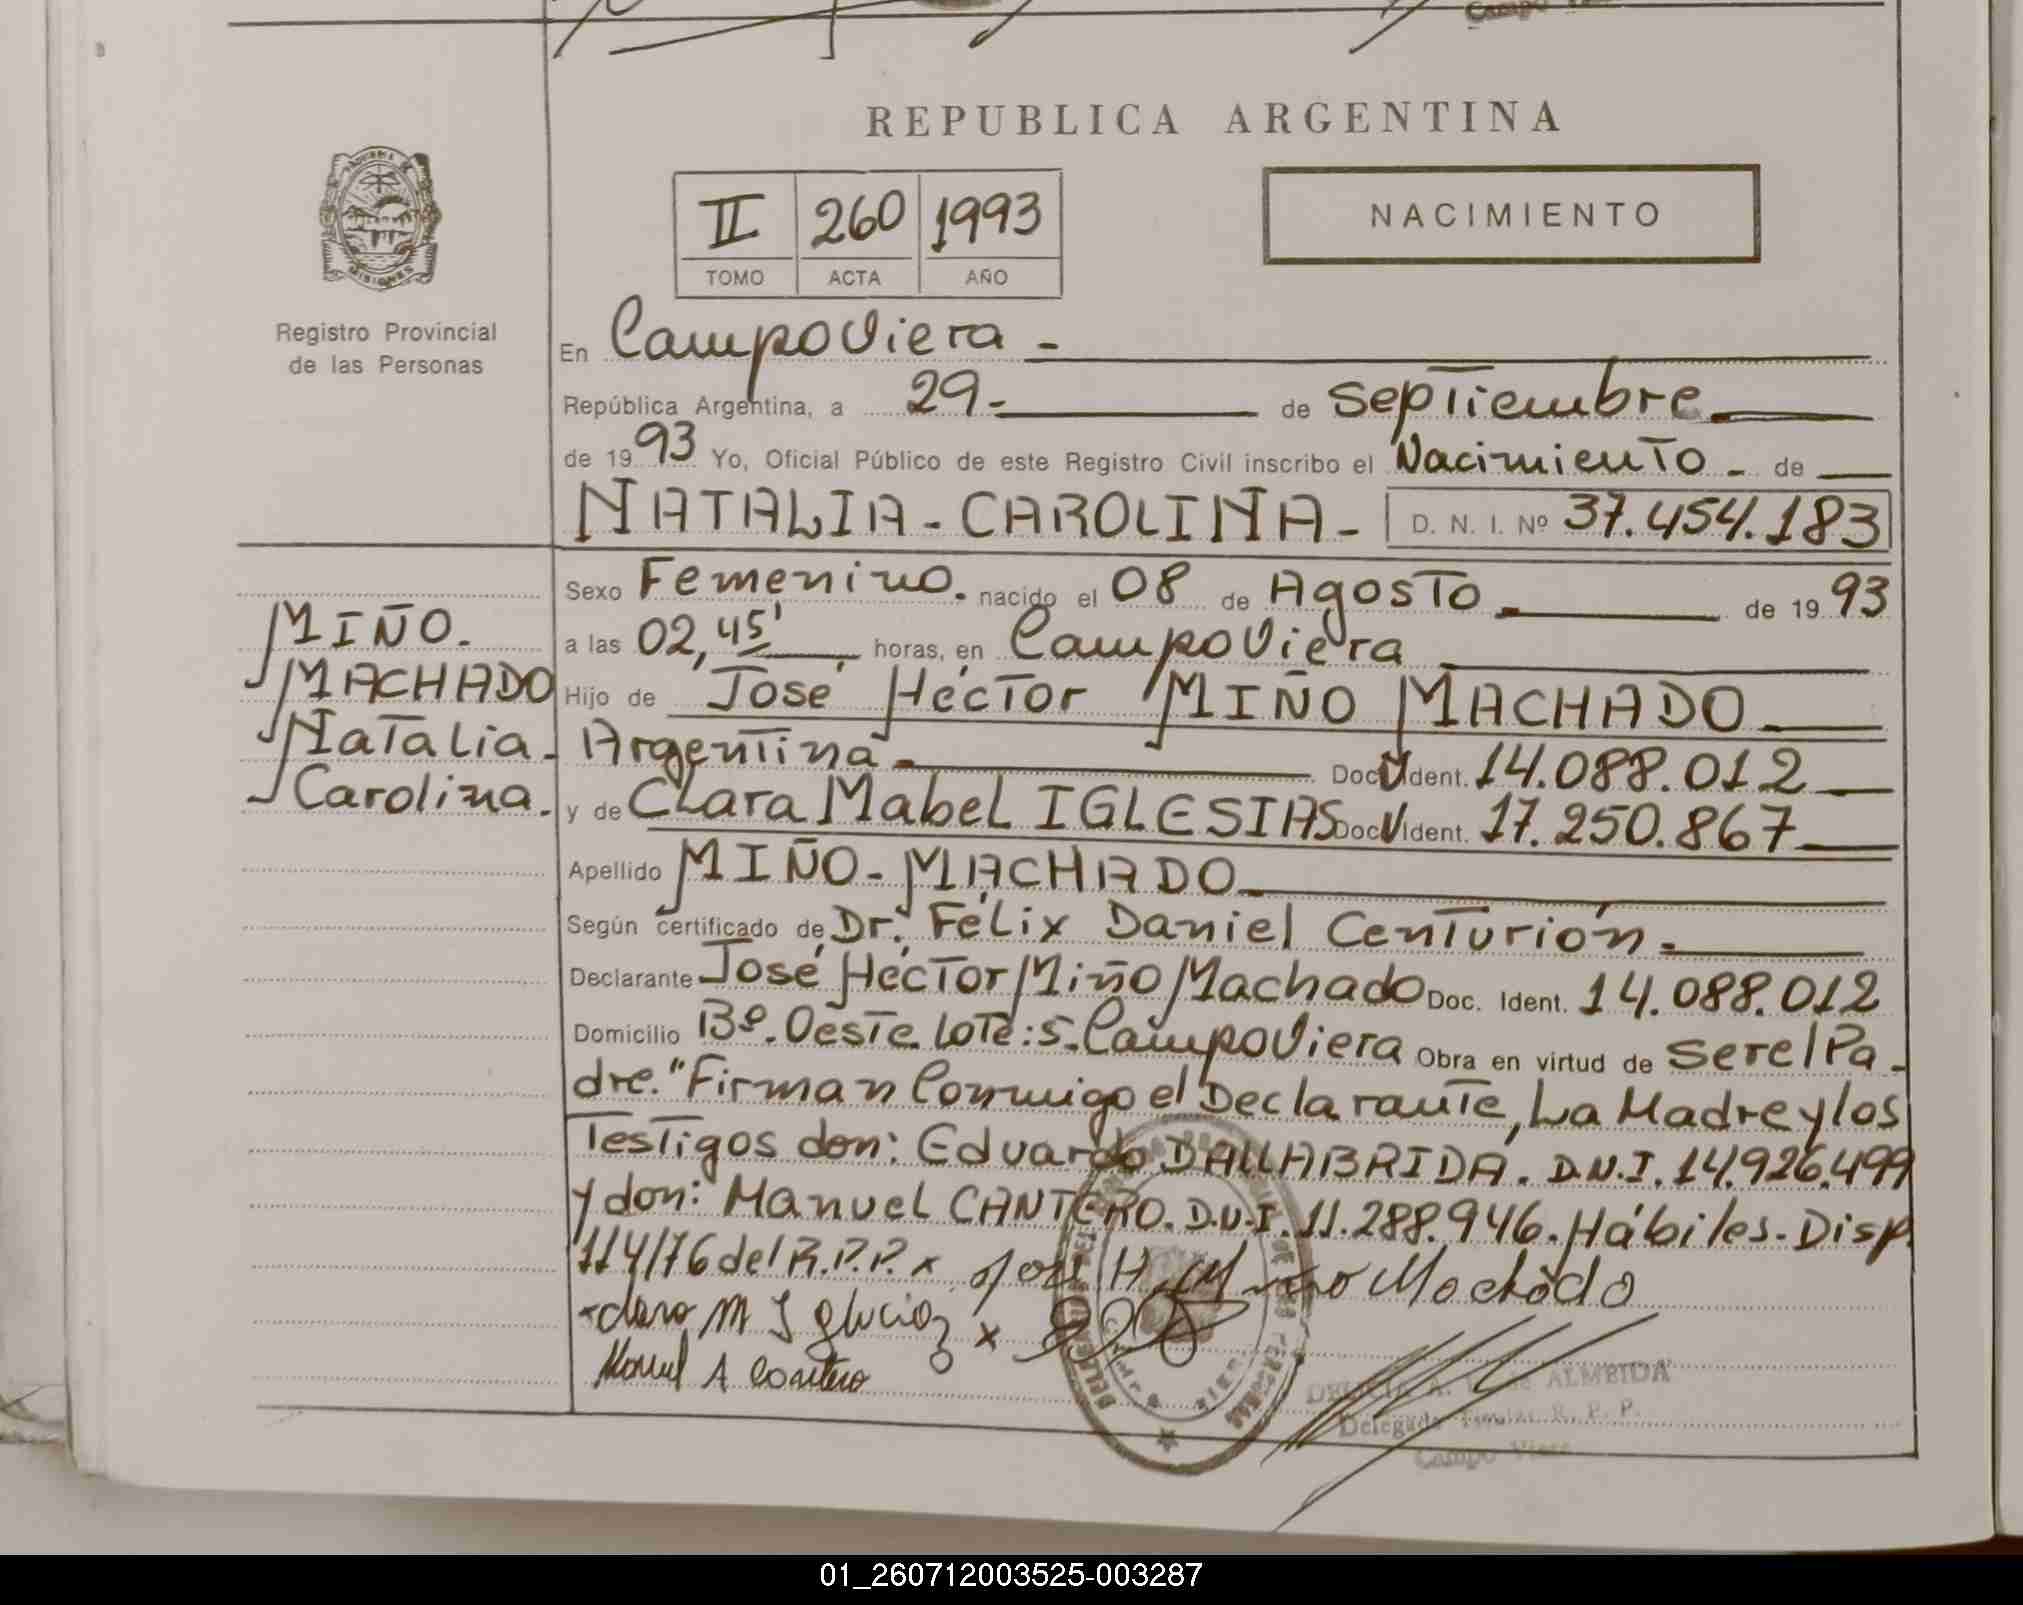 REPUBLICA ARGENTINA
II 260 1993
TOMO ACTA AÑO
NACIMIENTO
MISIONES
Registro Provincial
de las Personas
En Campo Viera -
República Argentina, a 29- de septiembre
de 1993 Yo, Oficial Público de este Registro Civil inscribo el Nacimiento - de
NATALIA - CAROLINA - D. N. I. Nº 37.454.183
MIÑO.
MACHADO
Natalia -
Carolina.
Sexo Femenino. nacido el 08 de Agosto de 1993
a las 02,45' horas, en Campo Viera
Hijo de José Héctor MIÑO MACHADO
Argentina Doc. Ident. 14.088.012
y de Clara Mabel IGLESIAS Doc. Ident. 17.250.867
Apellido MIÑO - MACHADO
Según certificado de Dr. Félix Daniel Centurión.
Declarante José Héctor Miño Machado Doc. Ident. 14.088.012
Domicilio Bº. Oeste Lote: 5. Campo Viera Obra en virtud de ser el Pa-
dre. "Firman Conmigo el Declarante, La Madre y los
Testigos don: Eduardo DALLABRIDA. D.N.I. 14.926.499
y don: Manuel CANTERO. D.N.I. 11.288.946. Hábiles - Disp.
114/76 del R.P.P. x José H. Miño Machado
x Clara M Iglecias x
Manuel A Cantero
ALMEIDA
Delegada Titular R. P. P.
Campo Viera
01_260712003525-003287